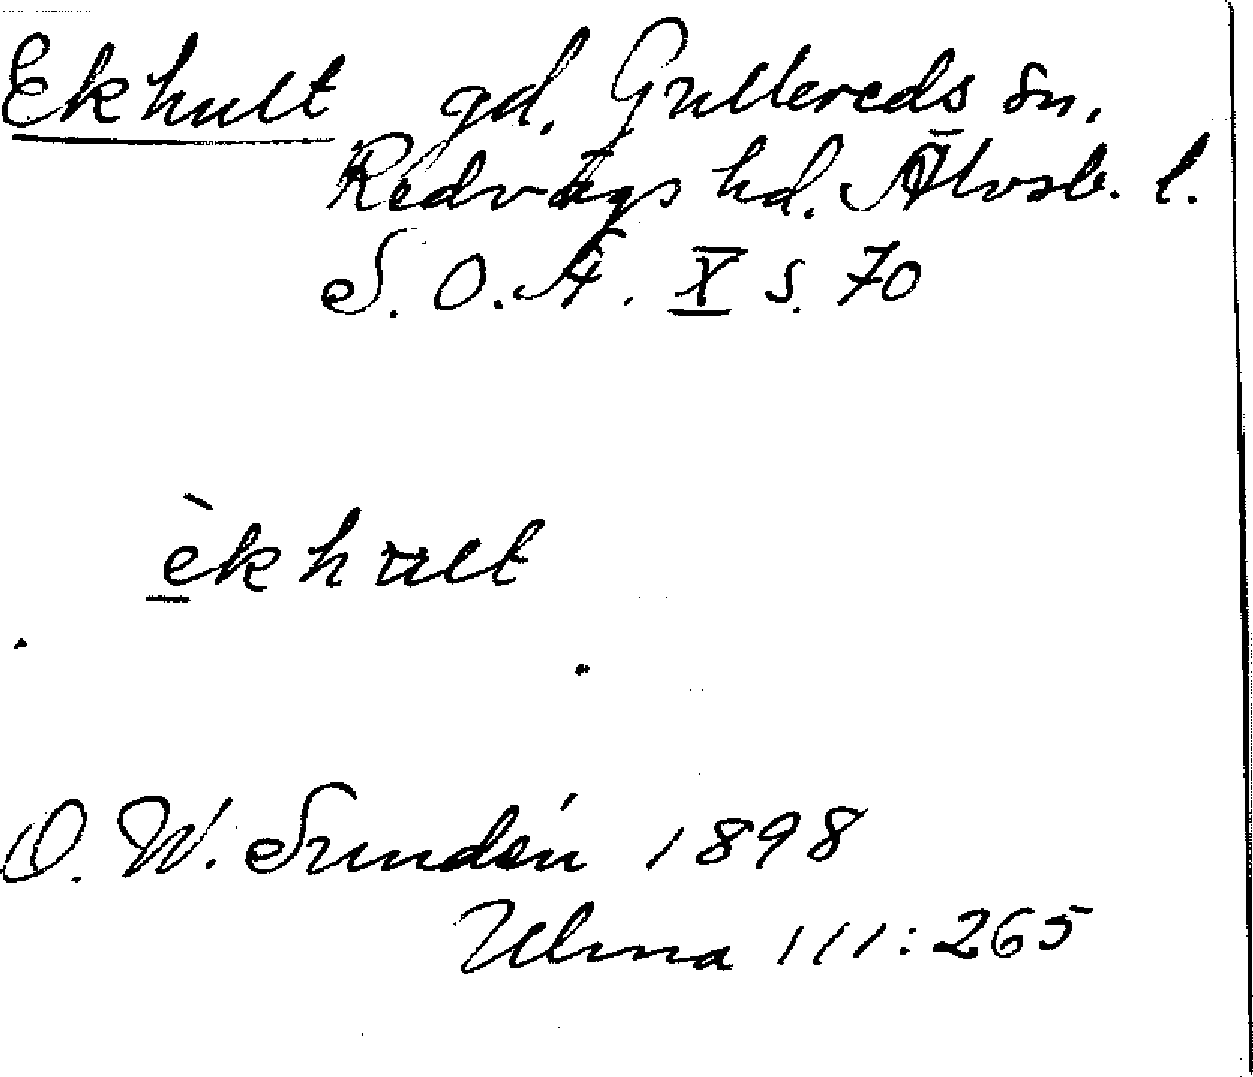 Ekhult gd, Gullereds sn,
Redvägs hd. Älvsb. l.
S. O. Ä. X s. 70
èkhult
O. W. Sundén 1898
Ulma 111:265